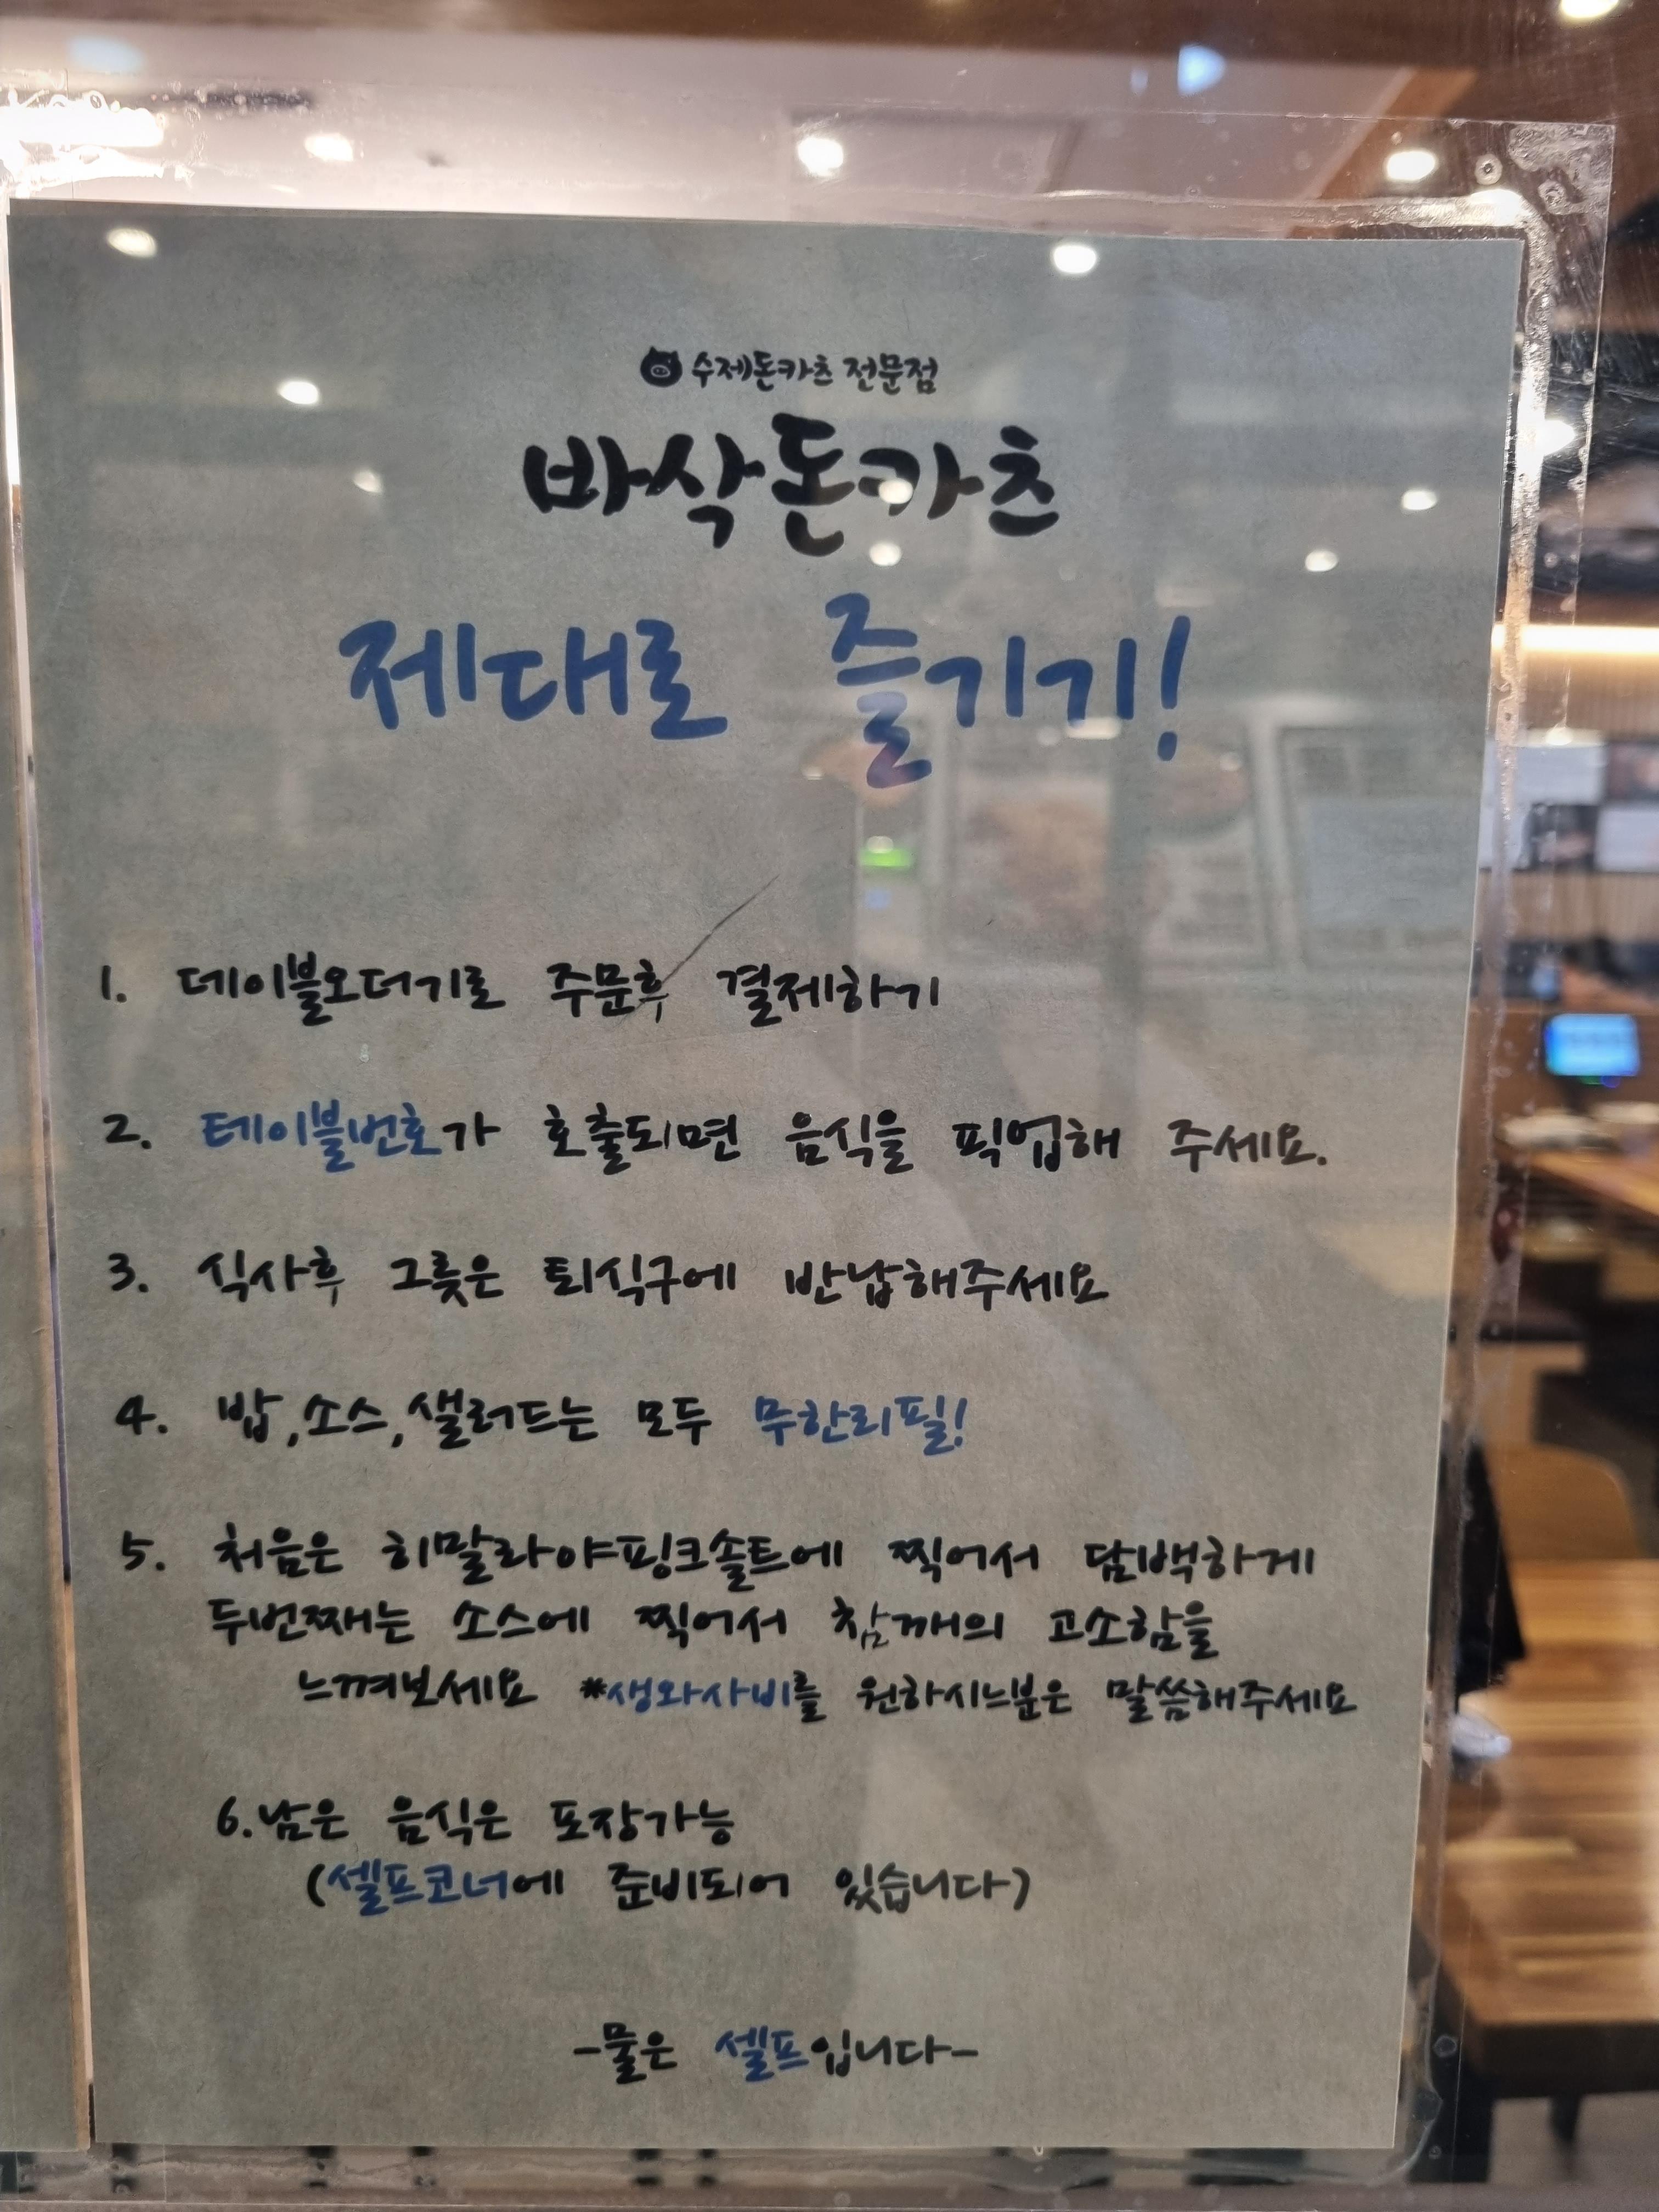 수제돈카츠 전문점
바삭돈카츠
제대로 즐기기!
1. 데이블오더기로 주문후 결제하기
2. 테이블번호가 호출되면 음식을 픽업해 주세요.
3. 식사후 그릇은 퇴식구에 반납해주세요
4. 밥,소스,샐러드는 모두 무한리필!
5. 처음은 히말라야핑크솔트에 찍어서 담백하게
두번째는 소스에 찍어서 참깨의 고소함을
느껴보세요 *생와사비를 원하시는분은 말씀해주세요
6.남은 음식은 포장가능
(셀프코너에 준비되어 있습니다)
-물은 셀프입니다-